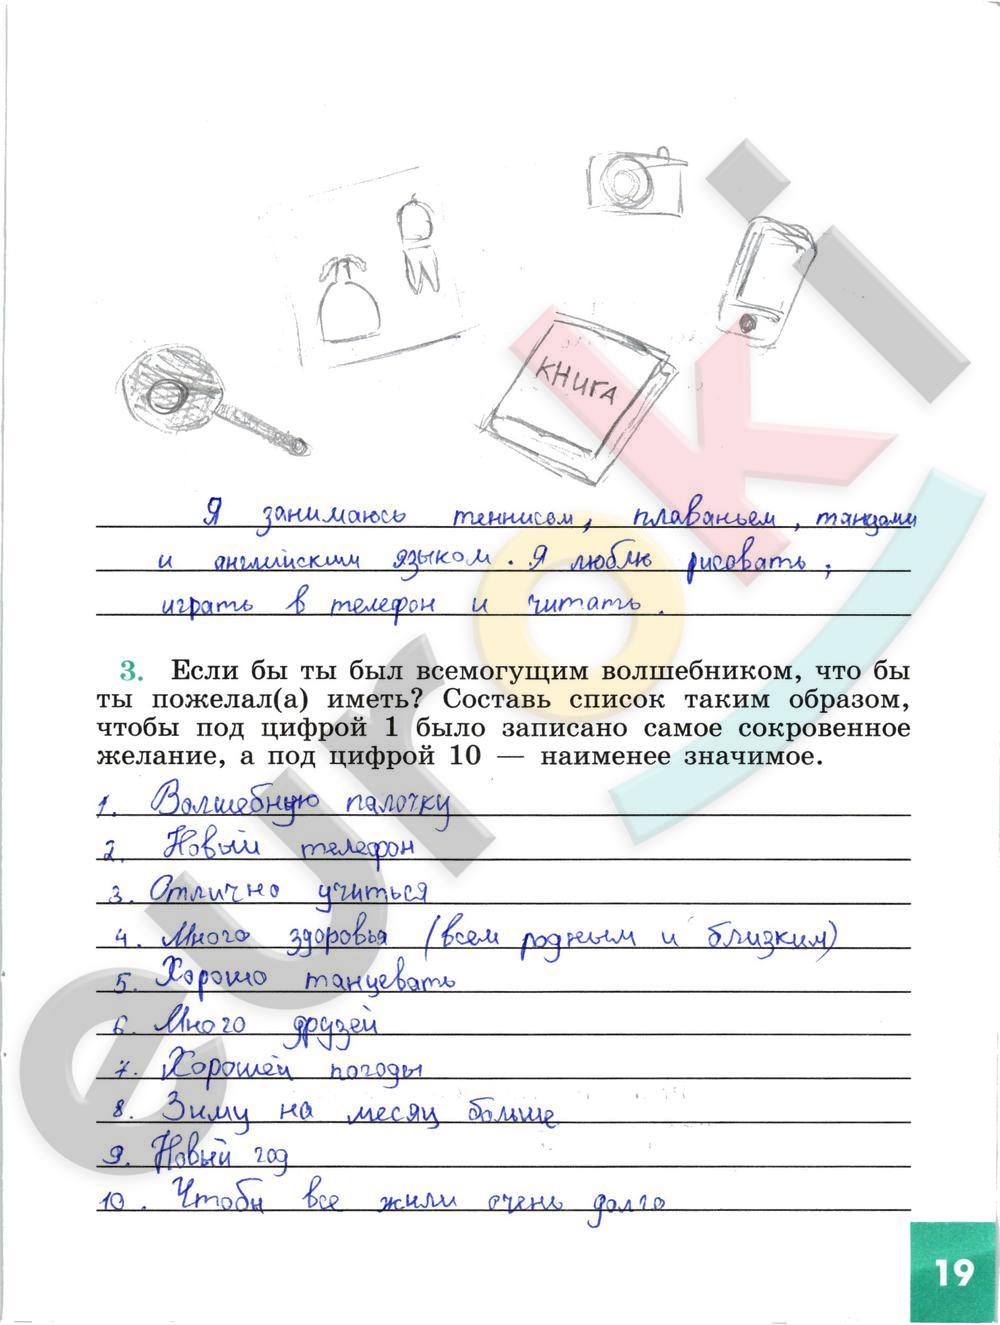 КНИГА
Я занимаюсь теннисом, плаваньем, танцами
и английским языком. Я люблю рисовать,
играть в телефон и читать.
3. Если бы ты был всемогущим волшебником, что бы
ты пожелал(а) иметь? Составь список таким образом,
чтобы под цифрой 1 было записано самое сокровенное
желание, а под цифрой 10 — наименее значимое.
1. Волшебную палочку
2. Новый телефон
3. Отлично учиться
4. Много здоровья (всем родным и близким)
5. Хорошо танцевать
6. Много друзей
7. Хорошей погоды
8. Зиму на месяц больше
9. Новый год
10. Чтобы все жили очень долго
19
euroki